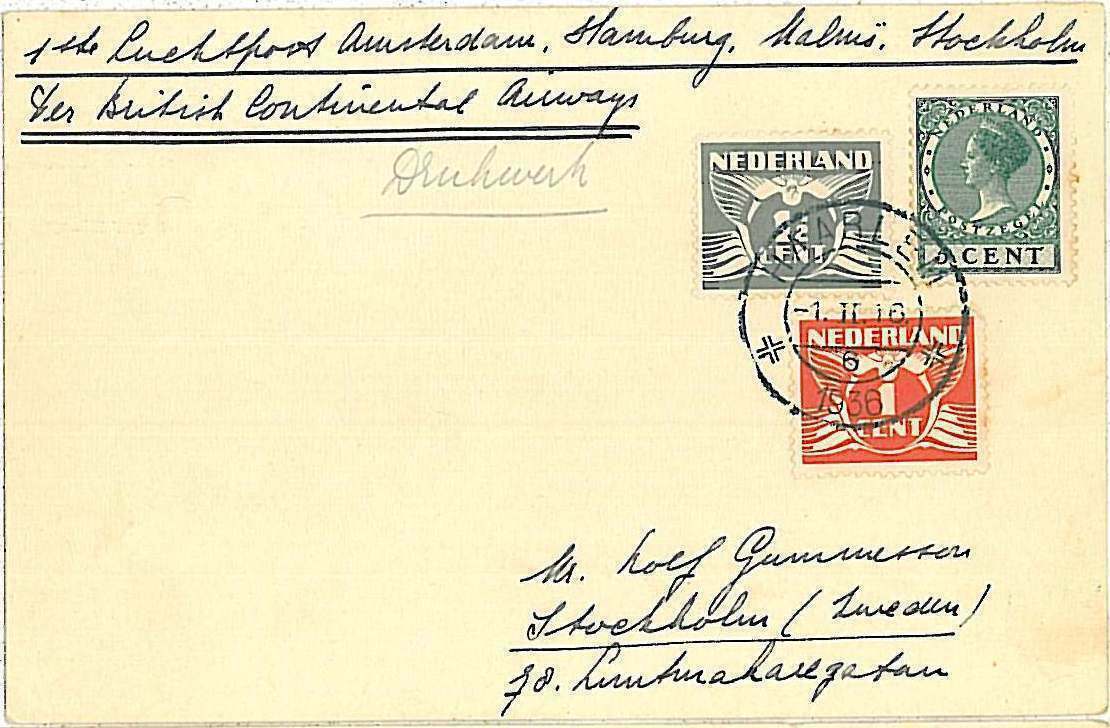 1ste Luchtpost Amsterdam, Hamburg, Malmö, Stockholm
Per British Continental Airways
Drukwerk
NEDERLAND
POSTZEGEL
5 CENT
NEDERLAND
CENT
HAARLEM
-1.II.16
6
1936
NEDERLAND
1
CENT
Mr. Rolf Gummesson
Stockholm (Sweden)
78. Luntmakaregatan